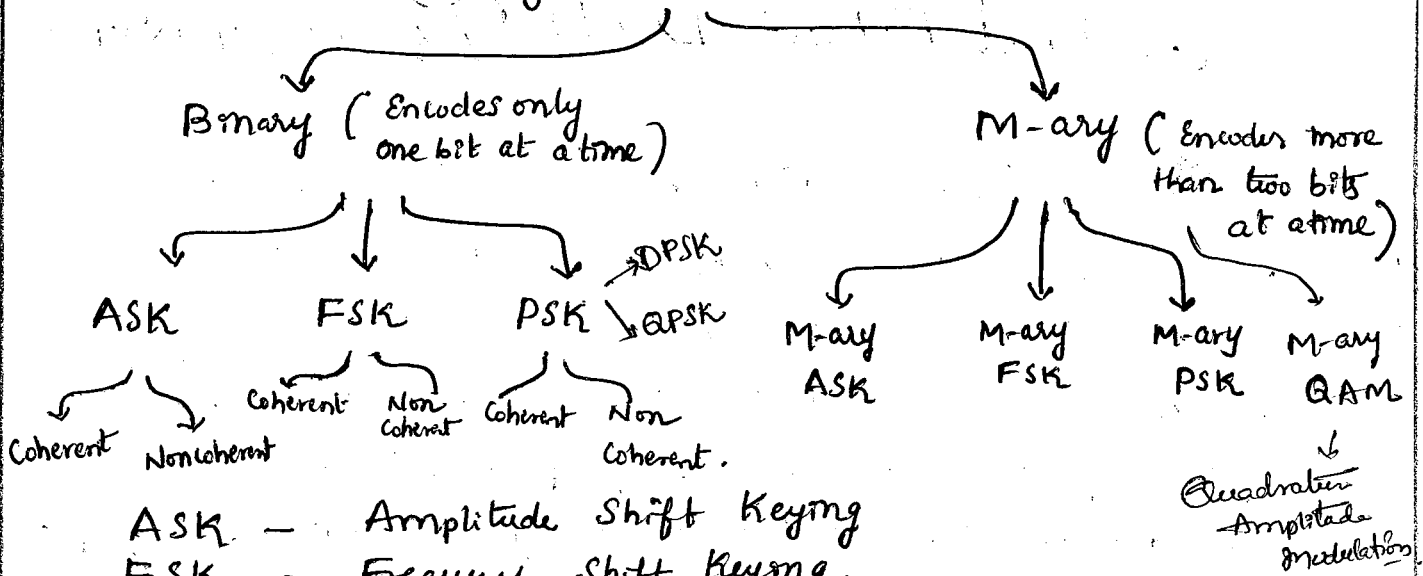 Binary (Encodes only
one bit at a time)
M-ary (Encodes more
than two bits
at a time)
ASK
FSK
PSK
DPSK
QPSK
M-ary
ASK
M-ary
FSK
M-ary
PSK
M-ary
QAM
Coherent
Noncoherent
Coherent
Non
Coherent
Coherent
Non
Coherent.
Quadrature
Amplitude
modulation
ASK - Amplitude Shift Keying
FSK - Frequency Shift Keying